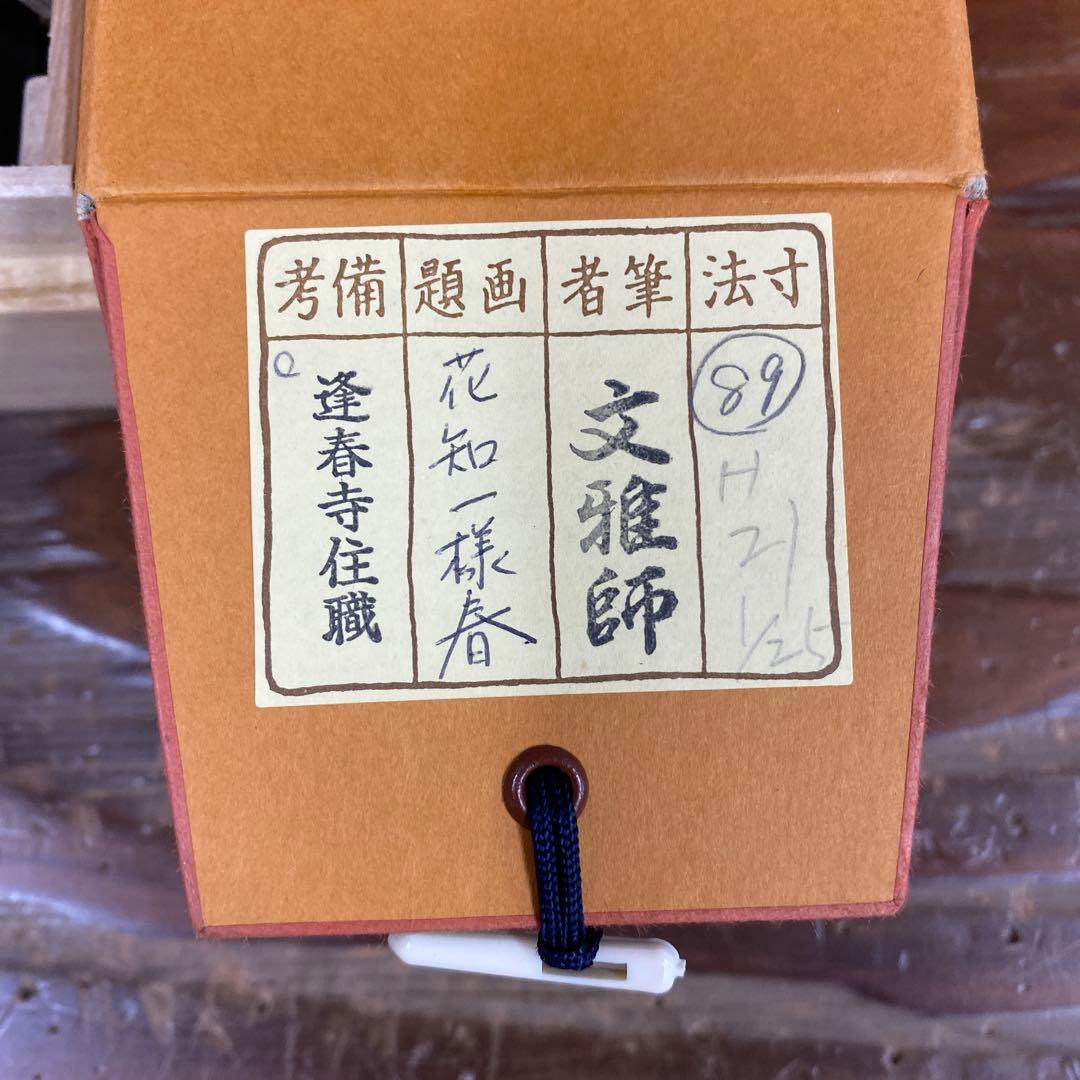 寸法
89
H
21
1/25
筆者
文雅師
画題
花知一様春
備考
逢春寺住職